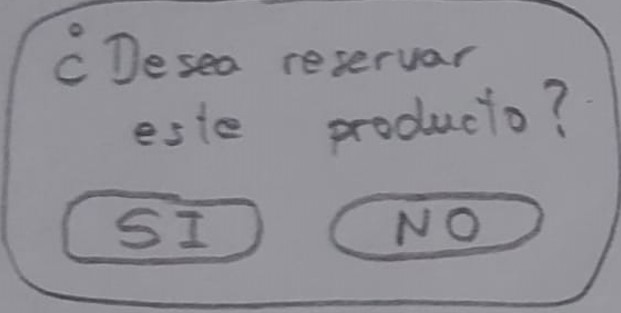 ¿Desea reservar
este producto?
SI NO